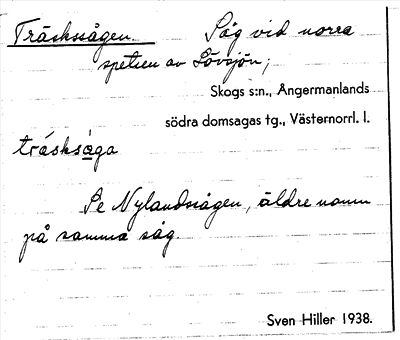 Träsksågen. Såg vid norra
spetsen av Lövsjön;
Skogs s:n., Ångermanlands
södra domsagas tg., Västernorrl. l.
trásksǡga
Se Nylandssågen, äldre namn
på samma såg.
Sven Hiller 1938.